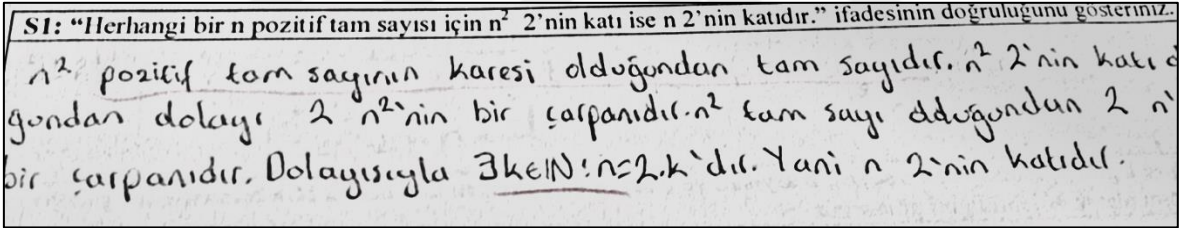 S1: “Herhangi bir n pozitif tam sayısı için n² 2’nin katı ise n 2’nin katıdır.” ifadesinin doğruluğunu gösteriniz.
n² pozitif tam sayının karesi olduğundan tam sayıdır. n² 2'nin katı o
ğundan dolayı 2 n²'nin bir çarpanıdır. n² tam sayı olduğundan 2 n'
bir çarpanıdır. Dolayısıyla ∃k∈ℕ: n=2.k'dır. Yani n 2'nin katıdır.